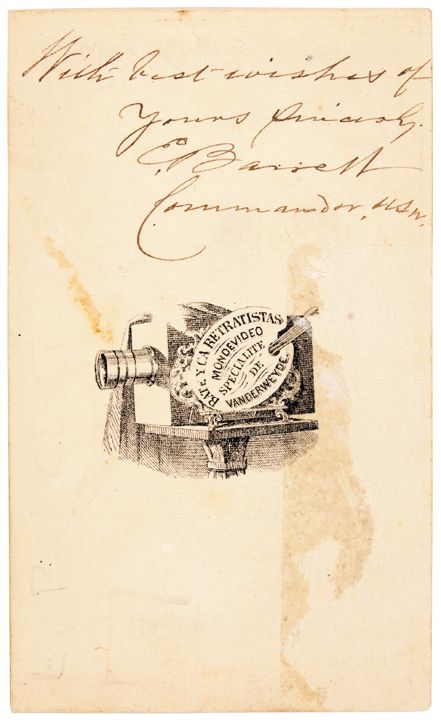 With best wishes of
Yours Sincerely,
E. Barrett
Commander, USN.
BATE Y CA RETRATISTAS
MONDEVIDEO
SPECIALITE
DE
VANDERWEYDE.